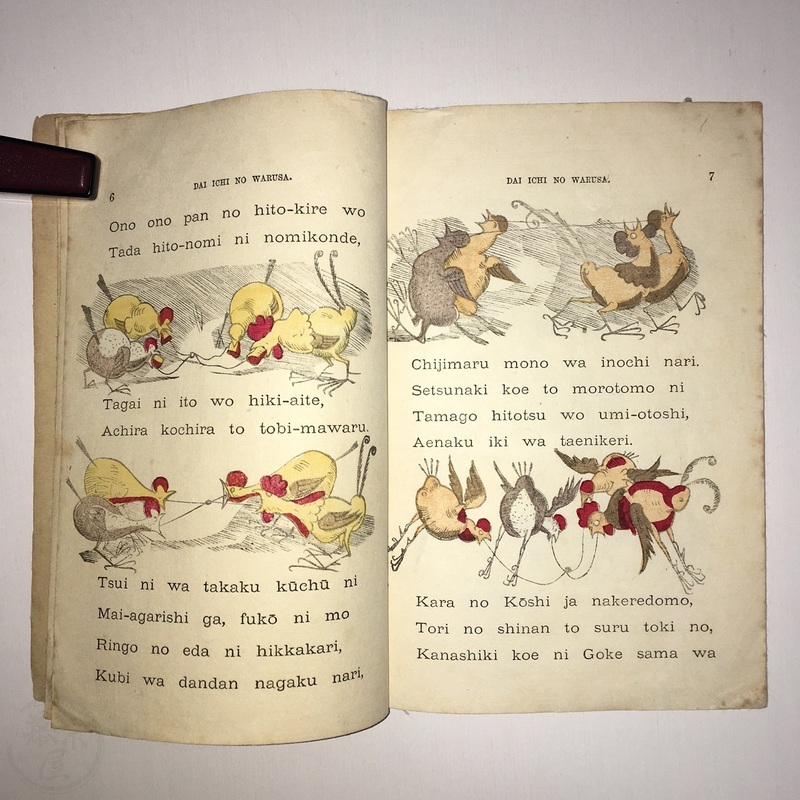 6
DAI ICHI NO WARUSA.
Ono ono pan no hito-kire wo
Tada hito-nomi ni nomikonde,
Tagai ni ito wo hiki-aite,
Achira kochira to tobi-mawaru.
Tsui ni wa takaku kūchū ni
Mai-agarishi ga, fukō ni mo
Ringo no eda ni hikkakari,
Kubi wa dandan nagaku nari,
DAI ICHI NO WARUSA.
7
Chijimaru mono wa inochi nari.
Setsunaki koe to morotomo ni
Tamago hitotsu wo umi-otoshi,
Aenaku iki wa taenikeri.
Kara no Kōshi ja nakeredomo,
Tori no shinan to suru toki no,
Kanashiki koe ni Goke sama wa